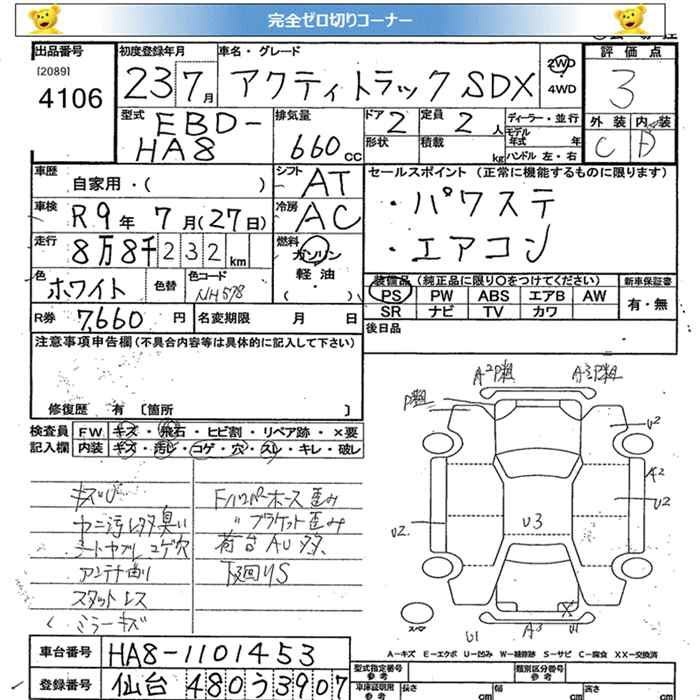 完全ゼロ切りコーナー
出品番号
[2089]
4106
初度登録年月
23 7月
車名・グレード
アクティトラック SDX
2WD
4WD
評価点
3
外装 内装
C D
型式
EBD-
HA8
排気量
660cc
ドア 2
定員 2人
形状
積載 kg
ディーラー・並行
モデル
年式 年
ハンドル 左・右
車歴
自家用・( )
シフト AT
車検 R9年 7月(27日)
冷房 AC
走行 8万8千232km
燃料
ガソリン
軽油
・( )
色
ホワイト
色替
色コード
NH578
R券 7,660円
名変期限 月 日
セールスポイント (正常に機能するものに限ります)
・パワステ
・エアコン
装備品 (純正品に限り〇をつけてください)
新車保証書
PS PW ABS エアB AW
有・無
SR ナビ TV カワ
後日品
注意事項申告欄(不具合内容等は具体的に記入して下さい)
修復歴 有 [箇所 ]
検査員 FW キズ・飛石・ヒビ割・リペア跡・×要
記入欄 内装 キズ・汚レ・コゲ・穴・スレ・キレ・破レ
キズU
シートヤブレ コゲ穴
アンテナ曲り
スタットレス
ミラーキズ
歪み
〃ブラケット歪み
荷台AU多
下廻りS
A2P粗
A3P粗
P粗
U2
A2
U2
U2
U3
X
U1
A3
U1
スペア
A-キズ E-エクボ U-凹み W-補修跡 S-サビ C-腐食 XX-交換済
車台番号 HA8-1101453
登録番号 仙台480う3907
型式指定番号
参考
類別区分番号
参考
車庫証明用
参考
長さ cm
幅 cm
高さ cm